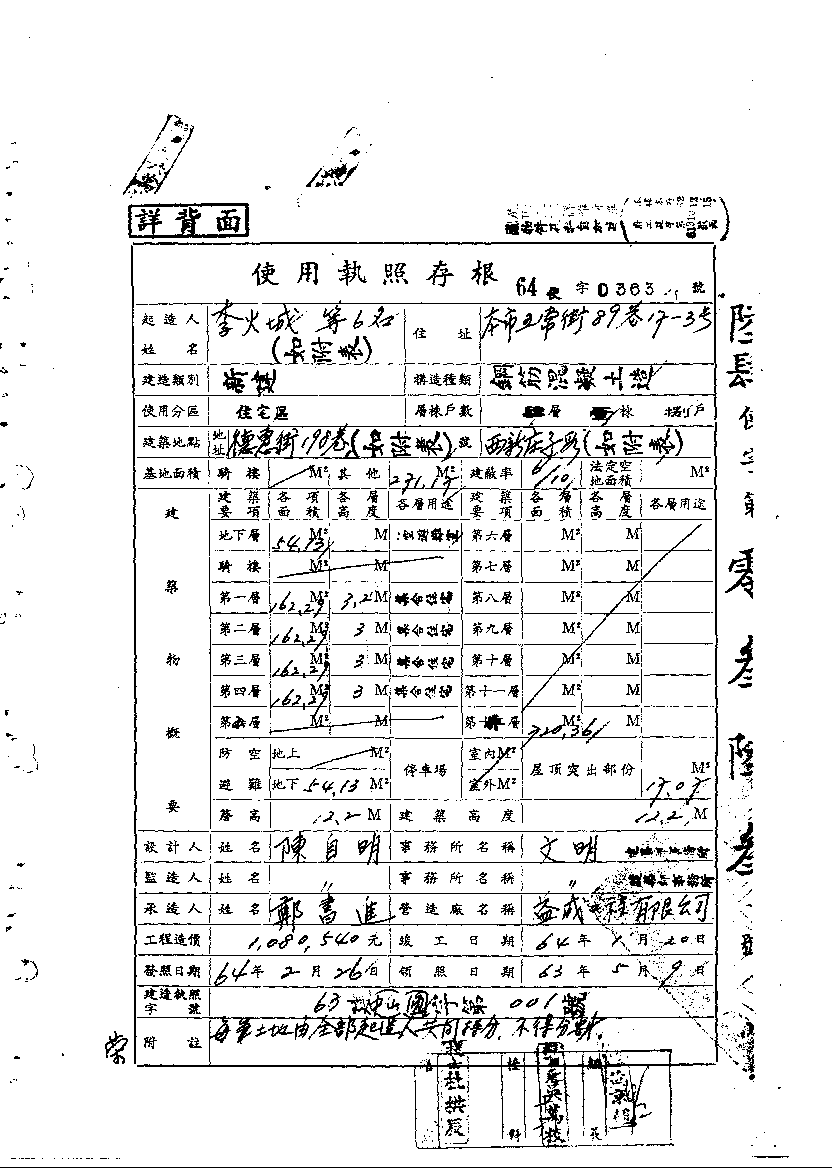 詳背面
使用執照存根 64 使 字 0363 號
起造人姓名 李火城 等6名 (如附表) 住址 本市五常街89巷17-3号
建造類別 新建 構造種類 鋼筋混凝土造
使用分區 住宅區 層棟戶數 層 棟 戶
建築地點 地址 德惠街198巷(如附表)號 西新庄子段(如附表)
基地面積 騎樓 M² 其他 231,15 M² 建蔽率 6/10 法定空地面積 M²
建築物概要
建築要項 各項面積 各層高度 各層用途 建築要項 各層面積 各層高度 各層用途
地下層 54,13 M² M 第六層 M² M
騎樓 M² M 第七層 M² M
第一層 162,29 M² 3,2 M 集合住宅 第八層 M² M
第二層 162,29 M² 3 M 集合住宅 第九層 M² M
第三層 162,29 M² 3 M 集合住宅 第十層 M² M
第四層 162,29 M² 3 M 集合住宅 第十一層 M² M
第 層 M² M 第 層 720,36 M² M
防空避難 地上 M² 地下 54,13 M² 停車場 室內M² 室外M² 屋頂突出部份 17,07 M²
簷高 12,2 M 建築高度 12,2 M
設計人 姓名 陳自明 事務所名稱 文明
監造人 姓名 〃 事務所名稱 〃
承造人 姓名 鄭書進 營造廠名稱 益成 程有限公司
工程造價 1,080,540 元 竣工日期 64年 1月 20日
發照日期 64年 2月 26日 領照日期 63年 5月 9日
建造執照字號 63 001 號
附註 由全部起造人共同持分,不得分割.
陸肆使字第零叁陸叁